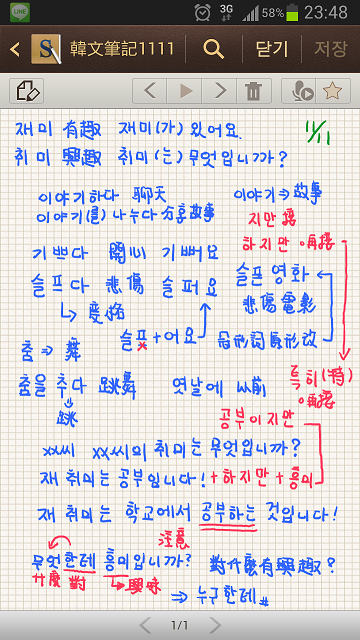 LINE 3G 58% 23:48
S 韓文筆記1111 닫기 저장
재미 有趣 재미(가) 있어요. 11/11
취미 興趣 취미(는) 무엇입니까?
이야기하다 聊天 이야기⇒故事
이야기(를) 나누다 分享故事
지만 接
기쁘다 開心 기뻐요 하지만 再接
슬프다 悲傷 슬퍼요 슬픈 영화
↳ 變格 悲傷電影
슬프+어요 冠形詞原形改
춤⇒舞
춤을 추다 跳舞 옛날에 以前 특히(特)
再接
跳 공부이지만
xx씨 xx씨의 취미는 무엇입니까?
재 취미는 공부입니다! +하지만+흥미
재 취미는 학교에서 공부하는 것입니다!
注意
무엇한테 흥미입니까? 對什麼有興趣?
什麼 對 ↳興味
⇒ 누구한테
1/1